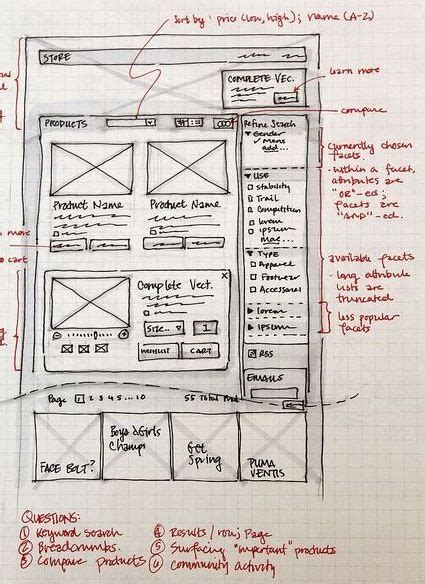 Sort by: price (low, high); name (A-Z)
STORE
COMPLETE VEC.
learn more
compare
PRODUCTS
Refine Search
Gender
✓ Mens
add...
currently chosen
facets
USE
stability
Trail
Competition
lorem
ipsum
more...
• within a facet,
attributes are
"OR"-ed;
facets are
"AND"-ed.
Product Name
Product Name
more
cart
TYPE
Apparel
Footwear
Accessories
available facets
• long attribute
lists are
truncated
Complete Vect.
X
SIZE..
1
WISHLIST
CART
lorem
ipsum
less popular
facets
RSS
EMAILS
Page 1 2 3 4 5 ... 10
55 Total Prod
FACE BOLT?
Boys & Girls
Champs
Get
Spring
PUMA
VENTIS
QUESTIONS:
① Keyword Search
② Breadcrumbs.
③ Compare products
④ Results / row; Page
⑤ Surfacing "important" products
⑥ Community activity